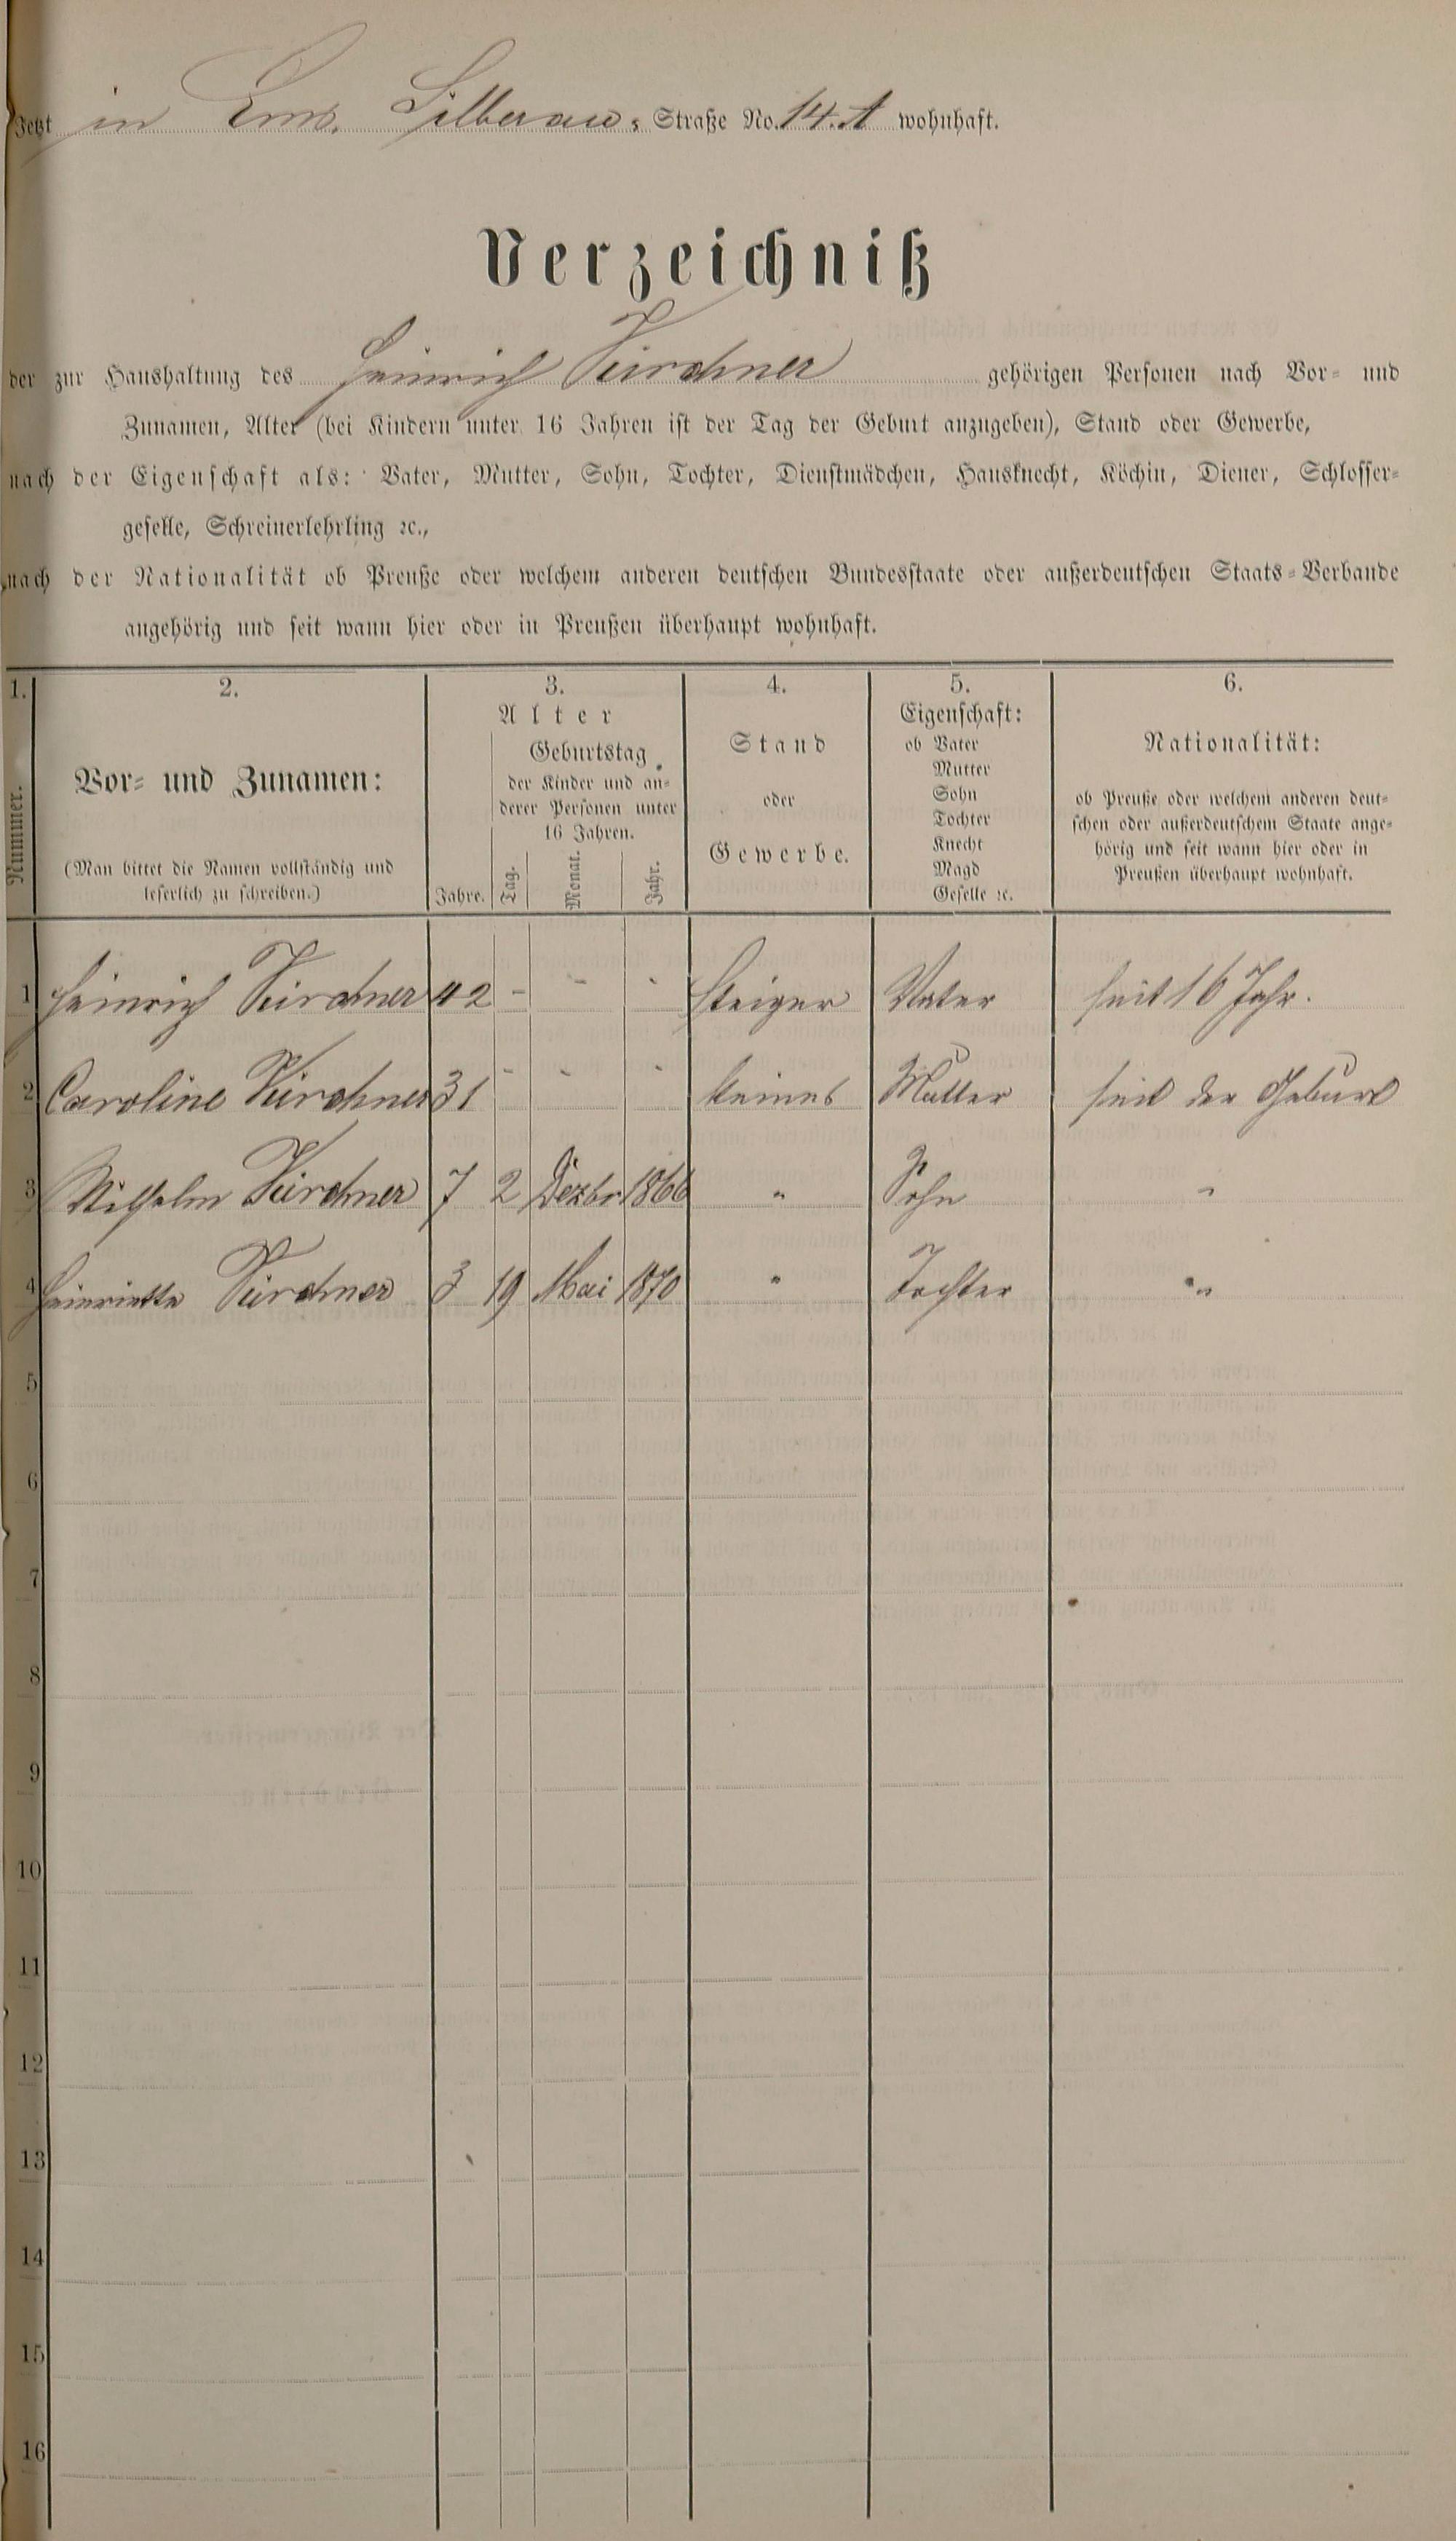 Jetzt in Ems, Silberau, Straße No. 14.A wohnhaft.
Verzeichniß
der zur Haushaltung des Heinrich Kirchner gehörigen Personen nach Vor- und
Zunamen, Alter (bei Kindern unter 16 Jahren ist der Tag der Geburt anzugeben), Stand oder Gewerbe,
nach der Eigenschaft als: Vater, Mutter, Sohn, Tochter, Dienstmädchen, Hausknecht, Köchin, Diener, Schlosser-
geselle, Schreinerlehrling ꝛc.,
nach der Nationalität ob Preuße oder welchem anderen deutschen Bundesstaate oder außerdeutschen Staats-Verbande
angehörig und seit wann hier oder in Preußen überhaupt wohnhaft.
1.
Nummer.
2.
Vor- und Zunamen:
(Man bittet die Namen vollständig und
leserlich zu schreiben.)
3.
Alter
Jahre.
Geburtstag
der Kinder und an-
derer Personen unter
16 Jahren.
Tag. Monat. Jahr.
4.
Stand
oder
Gewerbe.
5.
Eigenschaft:
ob Vater
Mutter
Sohn
Tochter
Knecht
Magd
Geselle ꝛc.
6.
Nationalität:
ob Preuße oder welchem anderen deut-
schen oder außerdeutschem Staate ange-
hörig und seit wann hier oder in
Preußen überhaupt wohnhaft.
1 Heinrich Kirchner 42 - - - Steiger Vater seit 16 Jahr.
2 Caroline Kirchner 31 - - - keines Mutter seit der Geburt
3 Wilhelm Kirchner 7 2 Dezbr 1866 " Sohn "
4 Heinriette Kirchner 3 19 Mai 1870 " Tochter "
5
6
7
8
9
10
11
12
13
14
15
16